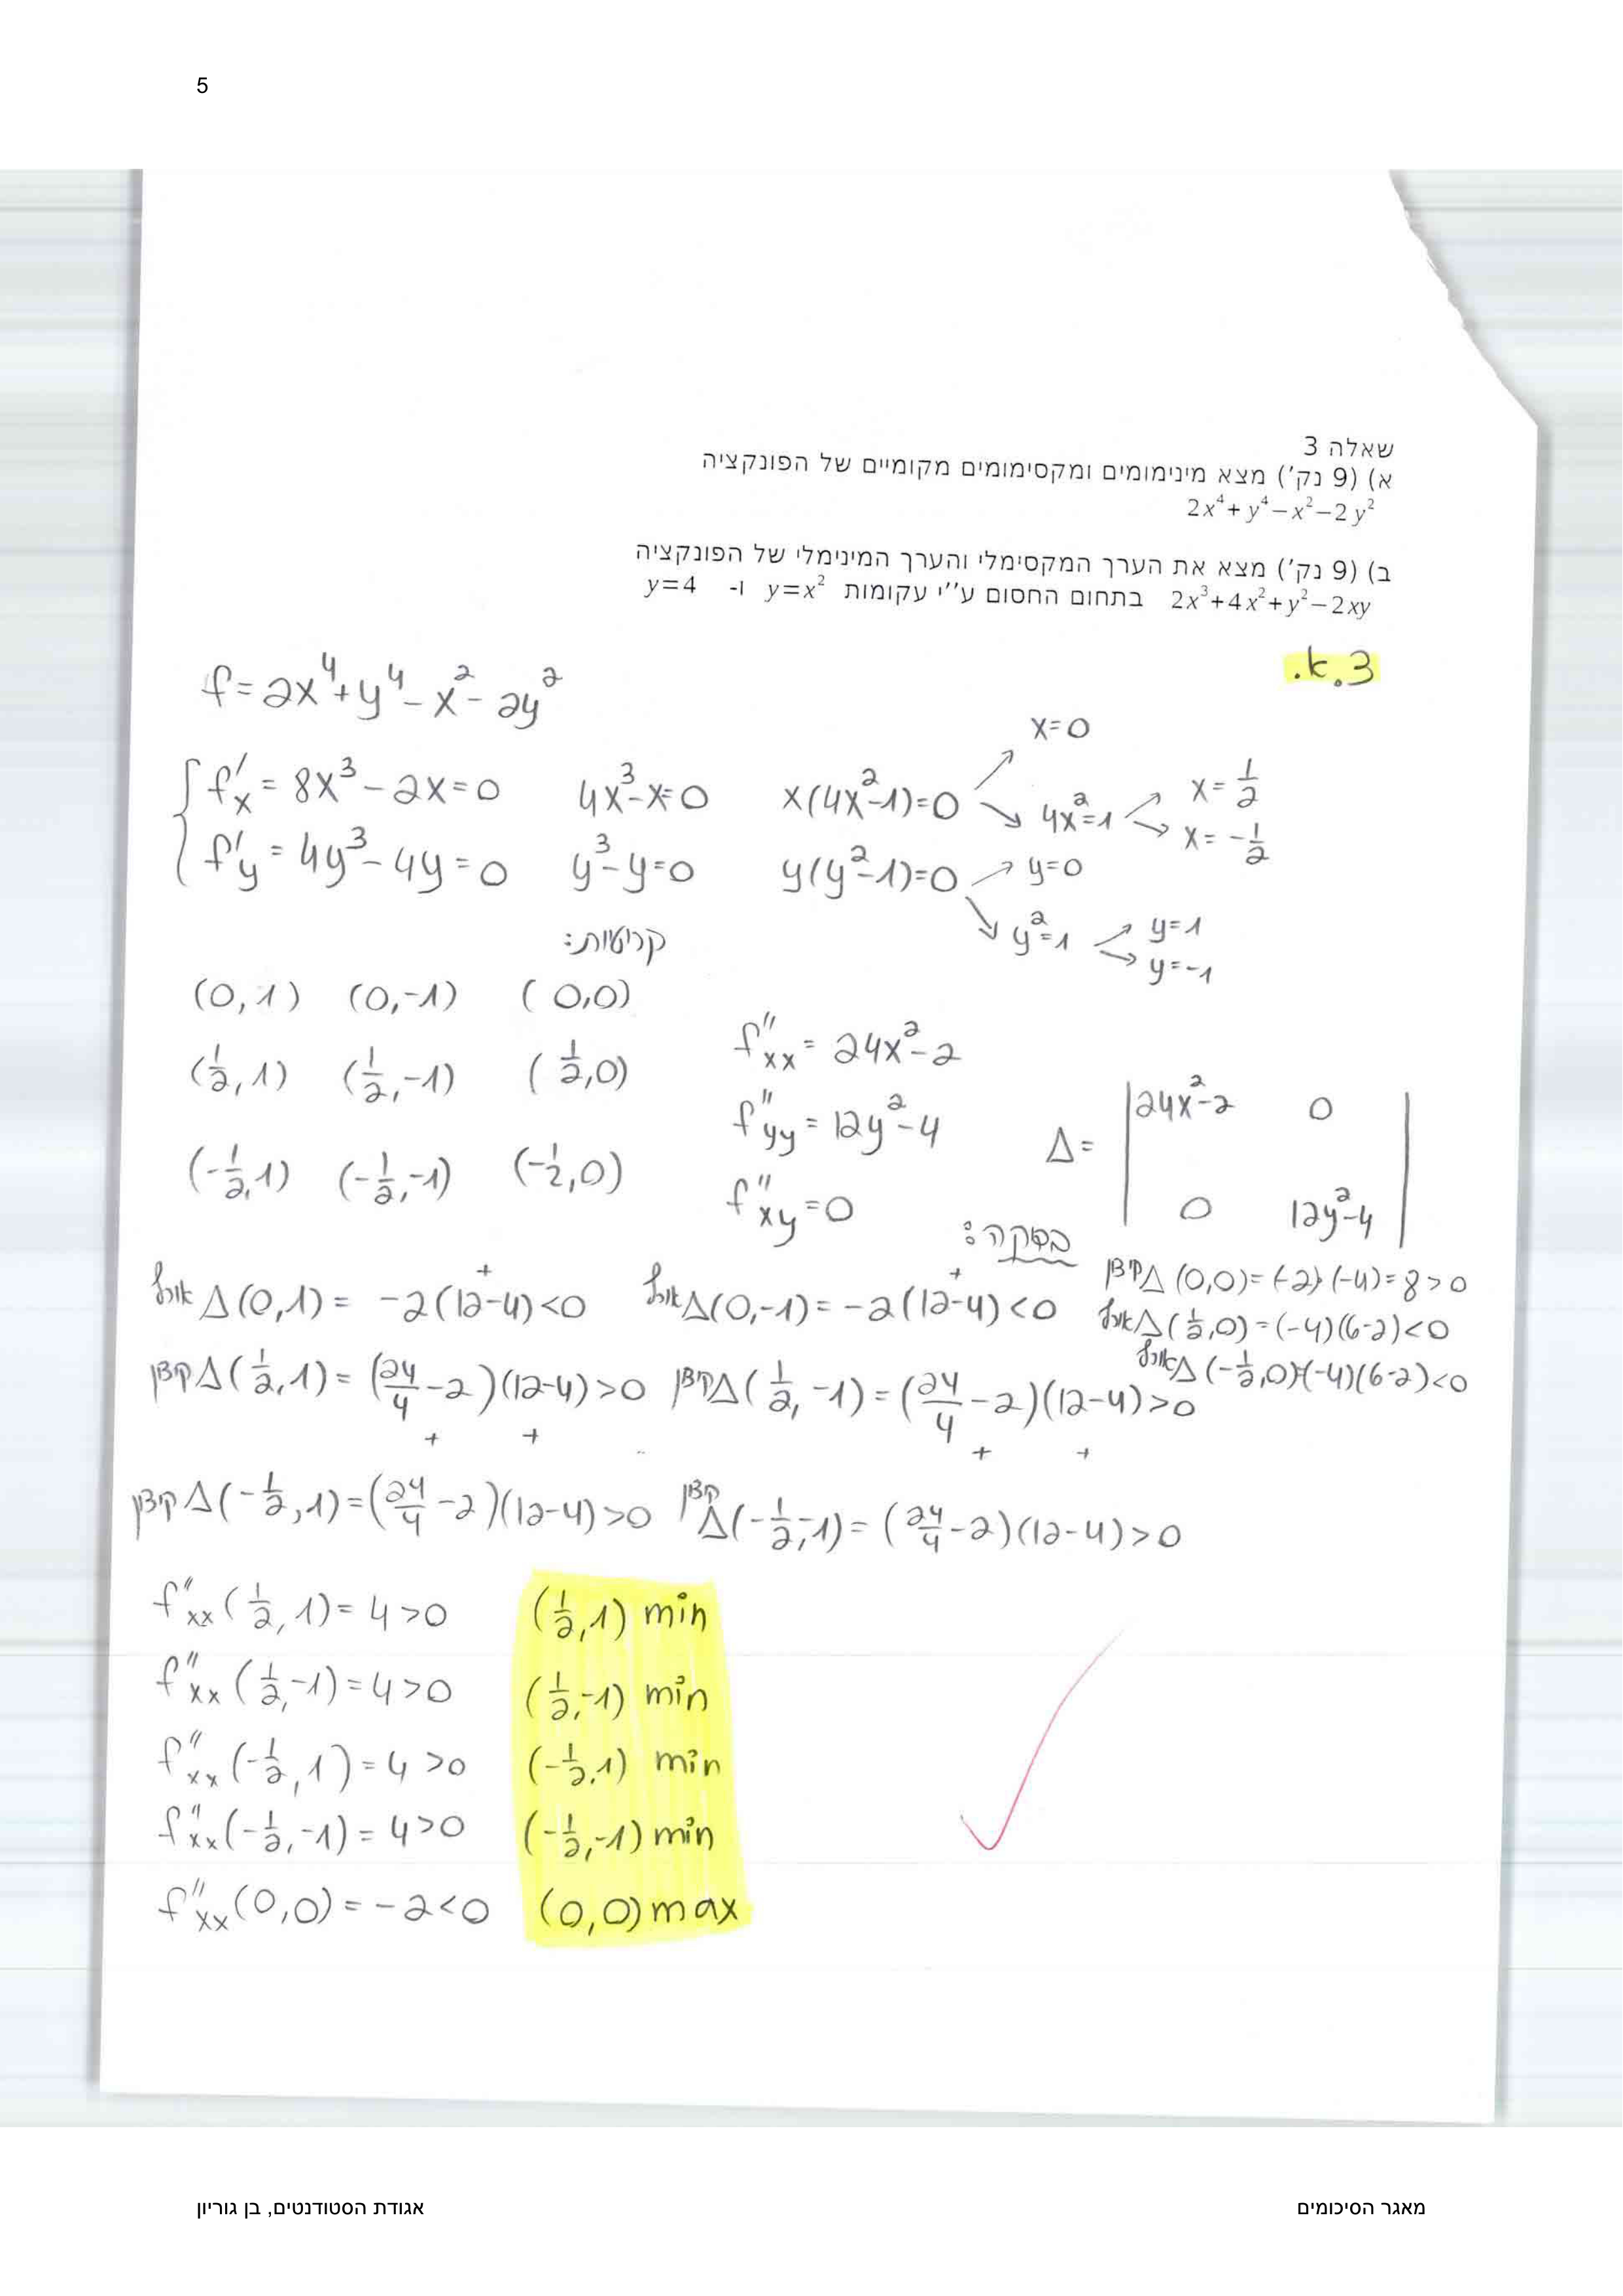 5
שאלה 3
א) (9 נק') מצא מינימומים ומקסימומים מקומיים של הפונקציה
2x⁴+y⁴−x²−2y²
ב) (9 נק') מצא את הערך המקסימלי והערך המינימלי של הפונקציה
2x³+4x²+y²−2xy בתחום החסום ע''י עקומות y=x² ו- y=4
3.א.
f=2x⁴+y⁴−x²−2y²
x=0
f'x = 8x³−2x=0 4x³−x=0 x(4x²−1)=0 4x²=1 x=1/2 x=−1/2
f'y = 4y³−4y=0 y³−y=0 y(y²−1)=0 y=0
y²=1 y=1 y=−1
קריטיות:
(0,1) (0,−1) (0,0)
(1/2,1) (1/2,−1) (1/2,0)
(−1/2,1) (−1/2,−1) (−1/2,0)
f''xx = 24x²−2
f''yy = 12y²−4
f''xy=0
Δ= |24x²−2 0|
|0 12y²−4|
בדיקה:
קיצון Δ(0,0)=(−2)(−4)=8>0
אוכף Δ(0,1)= −2(12−4)<0 אוכף Δ(0,−1)=−2(12−4)<0
+ +
אוכף Δ(1/2,0)=(−4)(6−2)<0
אוכף Δ(−1/2,0)=(−4)(6−2)<0
קיצון Δ(1/2,1)=(24/4−2)(12−4)>0 קיצון Δ(1/2,−1)=(24/4−2)(12−4)>0
+ + + +
קיצון Δ(−1/2,1)=(24/4−2)(12−4)>0 קיצון Δ(−1/2,−1)=(24/4−2)(12−4)>0
f''xx(1/2,1)=4>0 (1/2,1) min
f''xx(1/2,−1)=4>0 (1/2,−1) min
f''xx(−1/2,1)=4>0 (−1/2,1) min
f''xx(−1/2,−1)=4>0 (−1/2,−1) min
f''xx(0,0)=−2<0 (0,0) max
מאגר הסיכומים אגודת הסטודנטים, בן גוריון